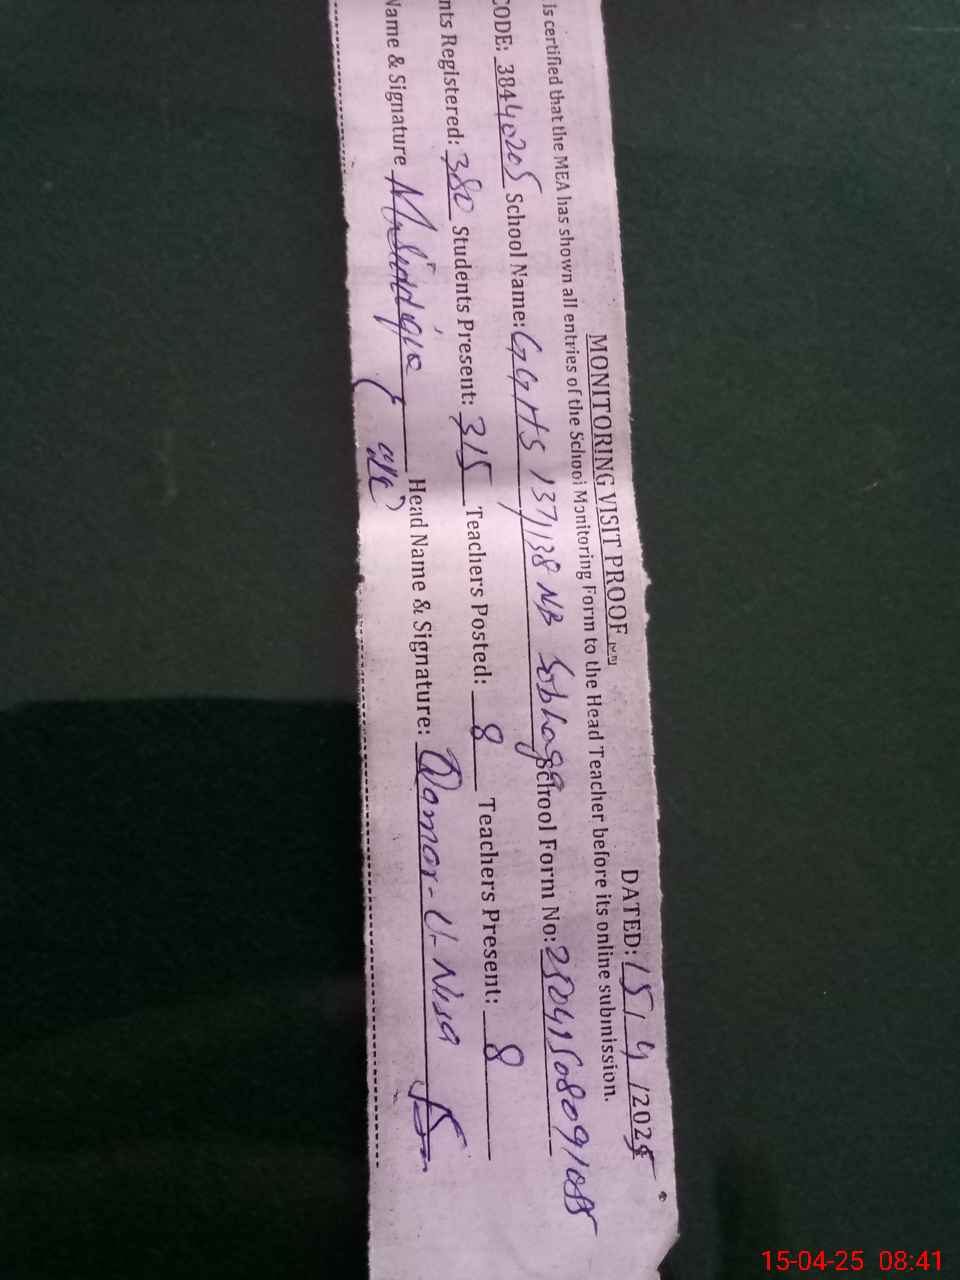 MONITORING VISIT PROOF
DATED: 15/4/2025
Is certified that the MEA has shown all entries of the School Monitoring Form to the Head Teacher before its online submission.
CODE: 38440205 School Name: GGHS 137/138 NB Sobhaga School Form No:
nts Registered: 380 Students Present: 315 Teachers Posted: 8 Teachers Present: 8
Name & Signature Head Name & Signature: Qamar-U-Nisa
15-04-25 08:41